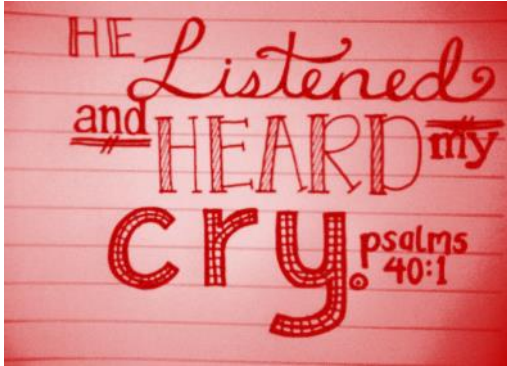 HE Listened
and HEARD my
cry. psalms
40:1